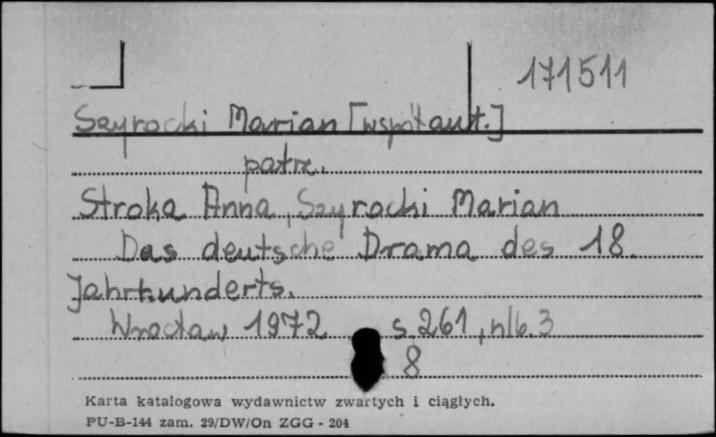 171511
Szyrocki Marian [współaut.]
patrz.
Stroka Anna, Szyrocki Marian
Das deutsche Drama des 18.
Jahrhunderts.
Wrocław 1972 s. 261, nlb. 3
8
Karta katalogowa wydawnictw zwartych i ciągłych.
PU-B-144 zam. 29/DW/On ZGG - 204